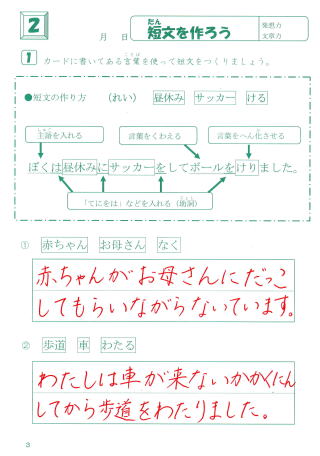 2
月 日
だん
短文を作ろう
発想力
文章力
1 カードに書いてある言葉を使って短文をつくりましょう。
ことば
●短文の作り方 (れい) 昼休み サッカー ける
しゅご
主語を入れる 言葉をくわえる 言葉をへん化させる
ぼくは昼休みにサッカーをしてボールをけりました。
「てにをは」などを入れる(助詞)
① 赤ちゃん お母さん なく
赤ちゃんがお母さんにだっこ
してもらいながらないています。
② 歩道 車 わたる
わたしは車が来ないかかくにん
してから歩道をわたりました。
3